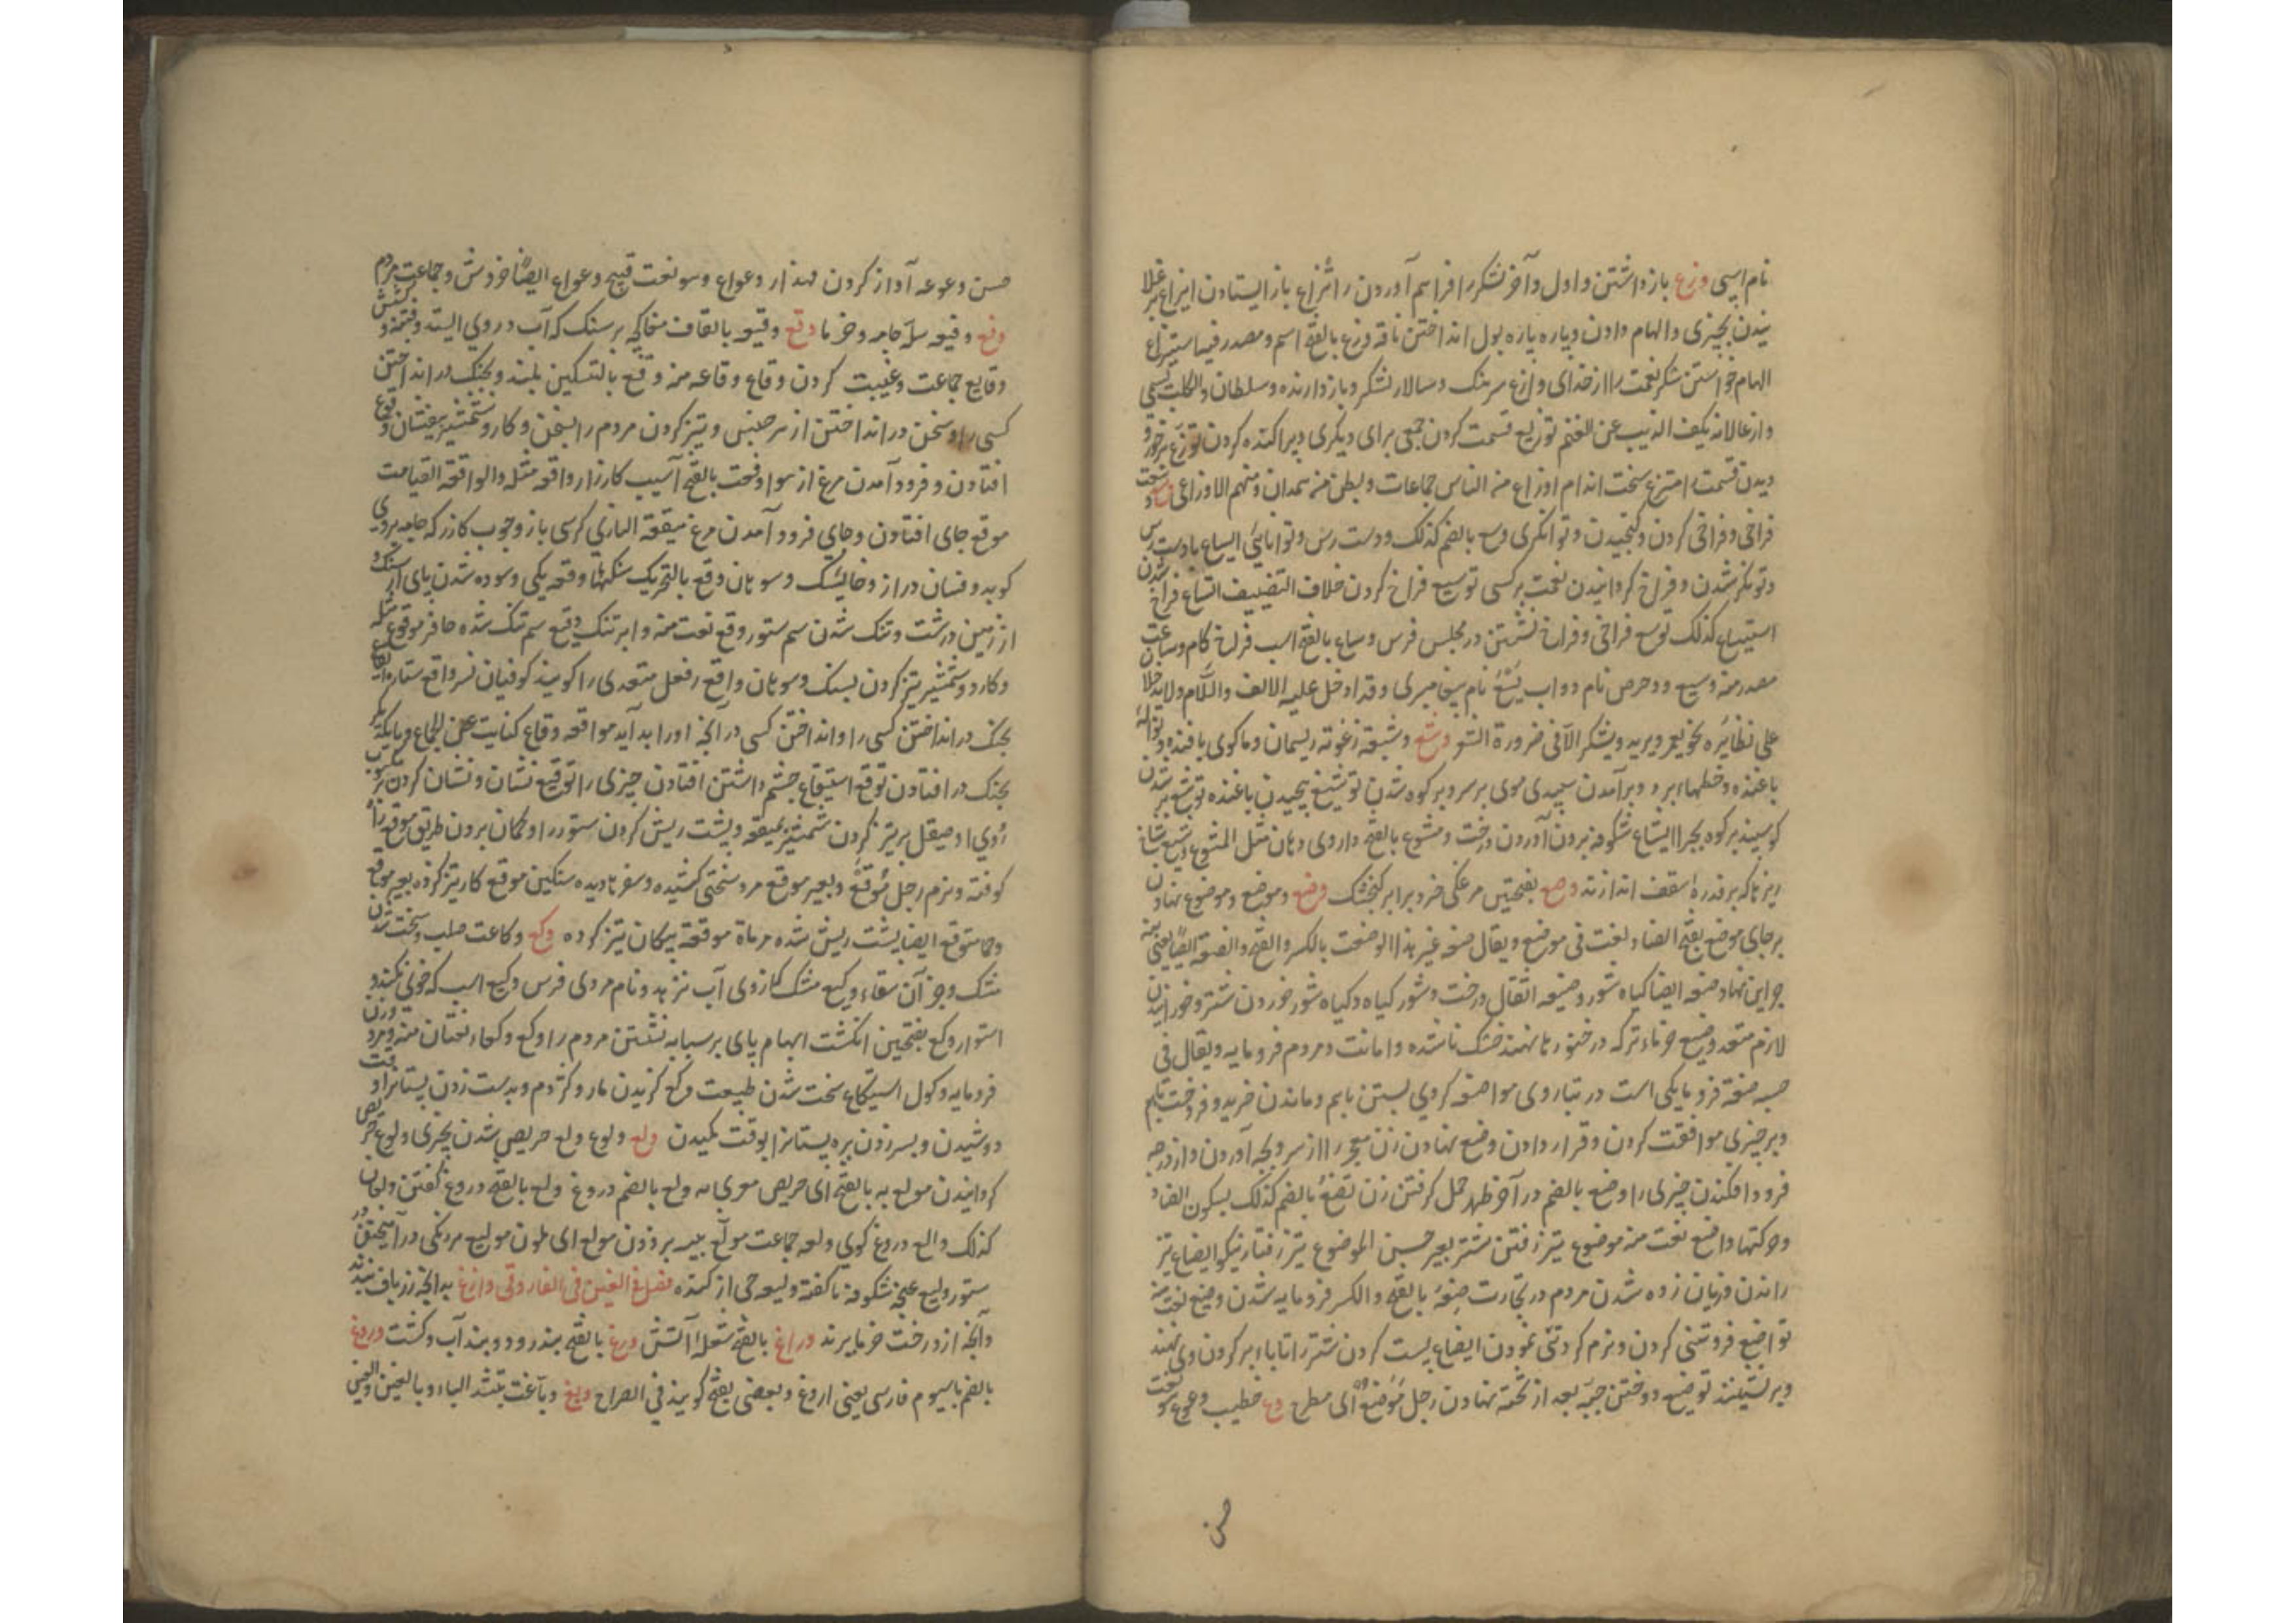 نام اسپی وزع بازداشتن و اول و آخر لشکر را فراهم آوردن اتزاع باز ایستادن ایزاع بر غلا
نیدن بچیزی و الهام دادن و پاره پاره بول انداختن ناقه وزع بالفتح اسم و مصدر فیهما استیزاع
الهام خواستن شکر نعمت را از خدای وازع سرهنک و سالار لشکر و بازدارنده و سلطان والکلب یسمی
وازعا لانه یکف الذیب عن الغنم توزیع قسمت کردن جمعی برای دیکری و پراکنده کردن توزع
دیدن قسمت را متزع سخت اندام اوزاع من الناس جماعات و بطن من همدان و منهم الاوزاعی وسع
فراخی و فراخی کردن و کنجیدن و توانکری وسع بالضم کذلک و دست رس و توانائی ایساع با دست رس
و توانکر شدن و فراخ کردانیدن نعمت بر کسی توسیع فراخ کردن خلاف التضییف اتساع فراخ شدن
استیساع کذلک توسع فراخی و فراخ نشستن در مجلس فرس وساع بالفتح اسب فراخ کام وساعت
مصدر منه وسیع و دحرض نام دو آب یسع نام پیغامبری و قد ادخل علیه الالف واللام ولا یدخلا
علی نظائره نحو یعمر و یزید و یشکر الا فی ضرورة الشعر وشع وشیعه زغوته ریسمان و ماکوی بافنده
باغنده و خطهاء برد و برآمدن سپیدی موی بر سر و بر کوه شدن توشیع پیچیدن باغنده توشع بر شدن
کوسپند بر کوه بچرا ایشاع شکوفه برون آوردن درخت وشوع بالفتح داروی دهان مثل النشوع
ریزها که بر خنوره سقف اندازند وصع بفتحتین مرغکی خرد برابر کنجشک وضع وموضع وموضوع نهادن
بر جای موضع بفتح الضاد لغت فی موضع و یقال ضعه غیر هذا الوضعة بالکسر والفتح والضعة ایضا
جو این نهاد ضعه ایضا کیاه شور وضیعه اثقال درخت شور کیاه و کیاه شور خوردن شتر و خورانیدن
لازم متعد وضیع خرماء تر که در خنور ها نهند خشک ناشده و امانت و مردم فرومایه و یقال فی
حسبه ضعة فرومایکی است در تبار وی مواضعه کروی بستن باهم و ماندن خرید و فروخت باهم
و بر چیزی موافقت کردن و قرار دادن وضع نهادن زن معجر را از سر و بچه آوردن و از درجه
فرود افکندن چیزی را وضع بالضم در آخر طهر حمل کرفتن زن تضع بالضم کذلک بسکون الضاد
وحرکتها واضع نعت منه موضوع تیز رفتن شتر بعیر حسن الموضوع تیز رفتار نیکو ایضاع تیز
راندن و زیان زده شدن مردم در تجارت ضعة بالفتح والکسر فرومایه شدن وضیع نعت منه
تواضع فروتنی کردن و نرم کردنی نمودن ایضاع پست کردن شتر را تا پا بر کردن وی نهند
و بر نشینند توضیع دوختن جبه بعد از پنبه نهادن رجل موضع ای مطرح وع خطیب وعوع
حسن
حسن وعوعه آواز کردن وعواع وهو نعت قبیح وعواع ایضا خروش و جماعت مردم
وفع وفیعه سله جامه و خرما وقع وقیع بالقاف مغاکچه بر سنک که آب در وی ایستد وقیعة
وقایع جماعت و غیبت کردن وقاع وقاعه منه وقع بالتسکین بلند و بجنک در انداختن
کسی را و سخن در انداختن از هر جنس و تیز کردن مردم را بسخن و کارد و شمشیر وقوع
افتادن و فرود آمدن مرغ از هوا وقعت بالفتح آسیب کارزار واقعه مثله والواقعة القیامت
موقع جای افتادن و جای فرود آمدن مرغ میقعة البازی کرسی باز و چوب کازر که جامه بر وی
کوبد و فسان دراز و خایسک و سوهان وقع بالتحریک سنکها وقعه یکی و سوده شدن پای از سنک و
از زمین درشت و تنک شدن سم ستور وقع نعت منه و ابر تنک وقیع سم تنک شده حافر موقوع مثله
و کارد و شمشیر تیز کردن بسنک و سوهان واقع فعل متعدی را کویند کوفیان نسر واقع ستاره
بجنک در انداختن کسی را و انداختن کسی در آنچه او را بد آید مواقعه وقاع کنایت عن الجماع و بایکدیکر
بجنک در افتادن توقع استیقاع چشم داشتن افتادن چیزی را توقیع نشان و نشان کردن بر مکتوب
روی او صیقل بر تیز کردن شمشیر بمیقعه و پشت ریش کردن ستور را و کمان بردن طریق موقع راه
کوفته و نرم رجل موقع و بعیر موقع مرد سختی کشیده و سفرها دیده سکین موقع کارد تیز کرده بعیر موقع
ایضا پشت ریش شده مرماة موقعة پیکان تیز کرده وکع وکاعت صلب و سخت شدن
مشک و جز آن سقاء وکیع مشک کز وی آب نزهد و نام مردی فرس وکیع اسب که خوی نکند
استوار وکع بفتحتین انکشت ابهام پای بر سبابه نشستن مردم را اوکع وکعاء نعتان منه و مرد
فرومایه و کول استیکاع سخت شدن طبیعت وکع کزیدن مار و کژدم و بدست زدن پستان را
دوشیدن و بسر زدن بره پستان را بوقت مکیدن ولع ولوع ولع حریص شدن بچیزی ایلاع حریص
کردانیدن مولع به بالفتح ای حریص مغری به ولع بالضم دروغ ولع بالفتح دروغ کفتن ولعان
کذلک والع دروغ کوی ولعه جماعت مولع پیسه برذون مولع ای ملون تولیع مردکی در آمیختن
ستور ولیع غنچه شکوفه ناکفته ولیعه حی از کنده فصل فی الغین فی الفاروقی وازغ بدانچه رز باف بندند
و آنچه از درخت خرما برند وراغ بالفتح شعلهٔ آتش ورغ بالفتح بند رود و بند آب و کشت وروغ
بالضم باسیوم فارسی یعنی اروغ و بعضی بفتح کویند فی الصراح وبغ وباغت بتشدید الباء وبالغین والعین